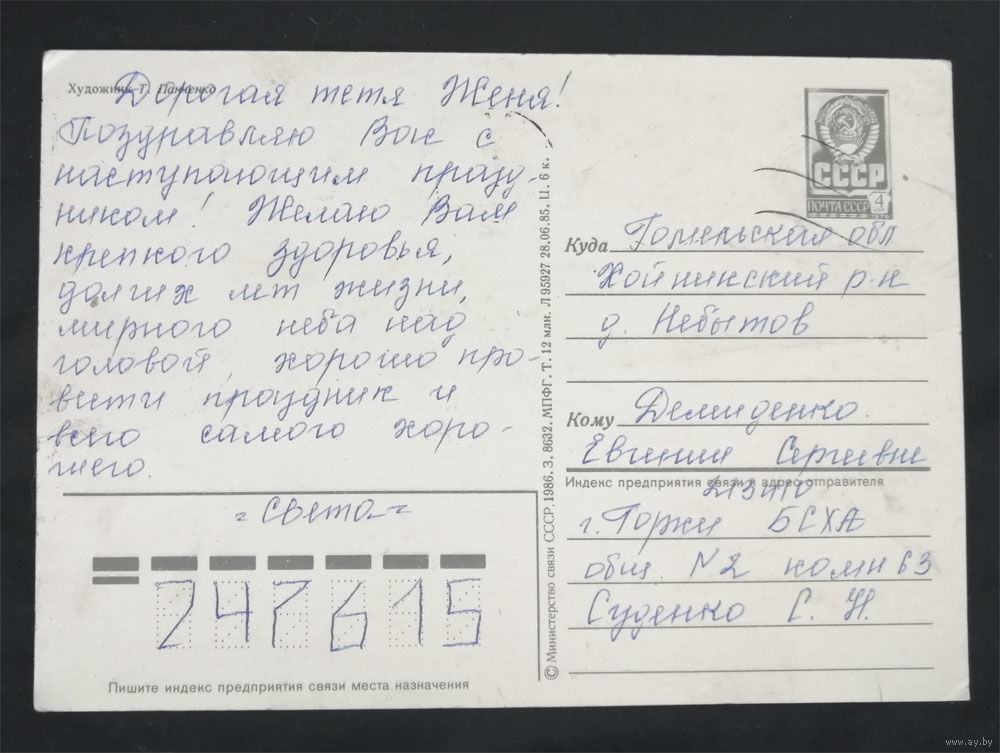 Художник Т. Панченко
Дорогая тетя Женя!
Поздравляю Вас с
наступающим празд-
ником! Желаю Вам
крепкого здоровья,
долгих лет жизни,
мирного неба над
головой, хорошо про-
вести праздник и
всего самого хоро-
шего.
= Света =
247615
Пишите индекс предприятия связи места назначения
© Министерство связи СССР, 1986. З. 8632. МПФГ. Т. 12 млн. Л 95927 28.06.85. Ц. 6 к.
СССР
ПОЧТА СССР 4
Куда Гомельская обл
Хойникский р-н
д. Небытов
Кому Демиденко
Евгении Сергеевне
Индекс предприятия связи и адрес отправителя
213410
г. Горки БСХА
общ. N2 комн 63
Суденко С. Н.
www.ay.by